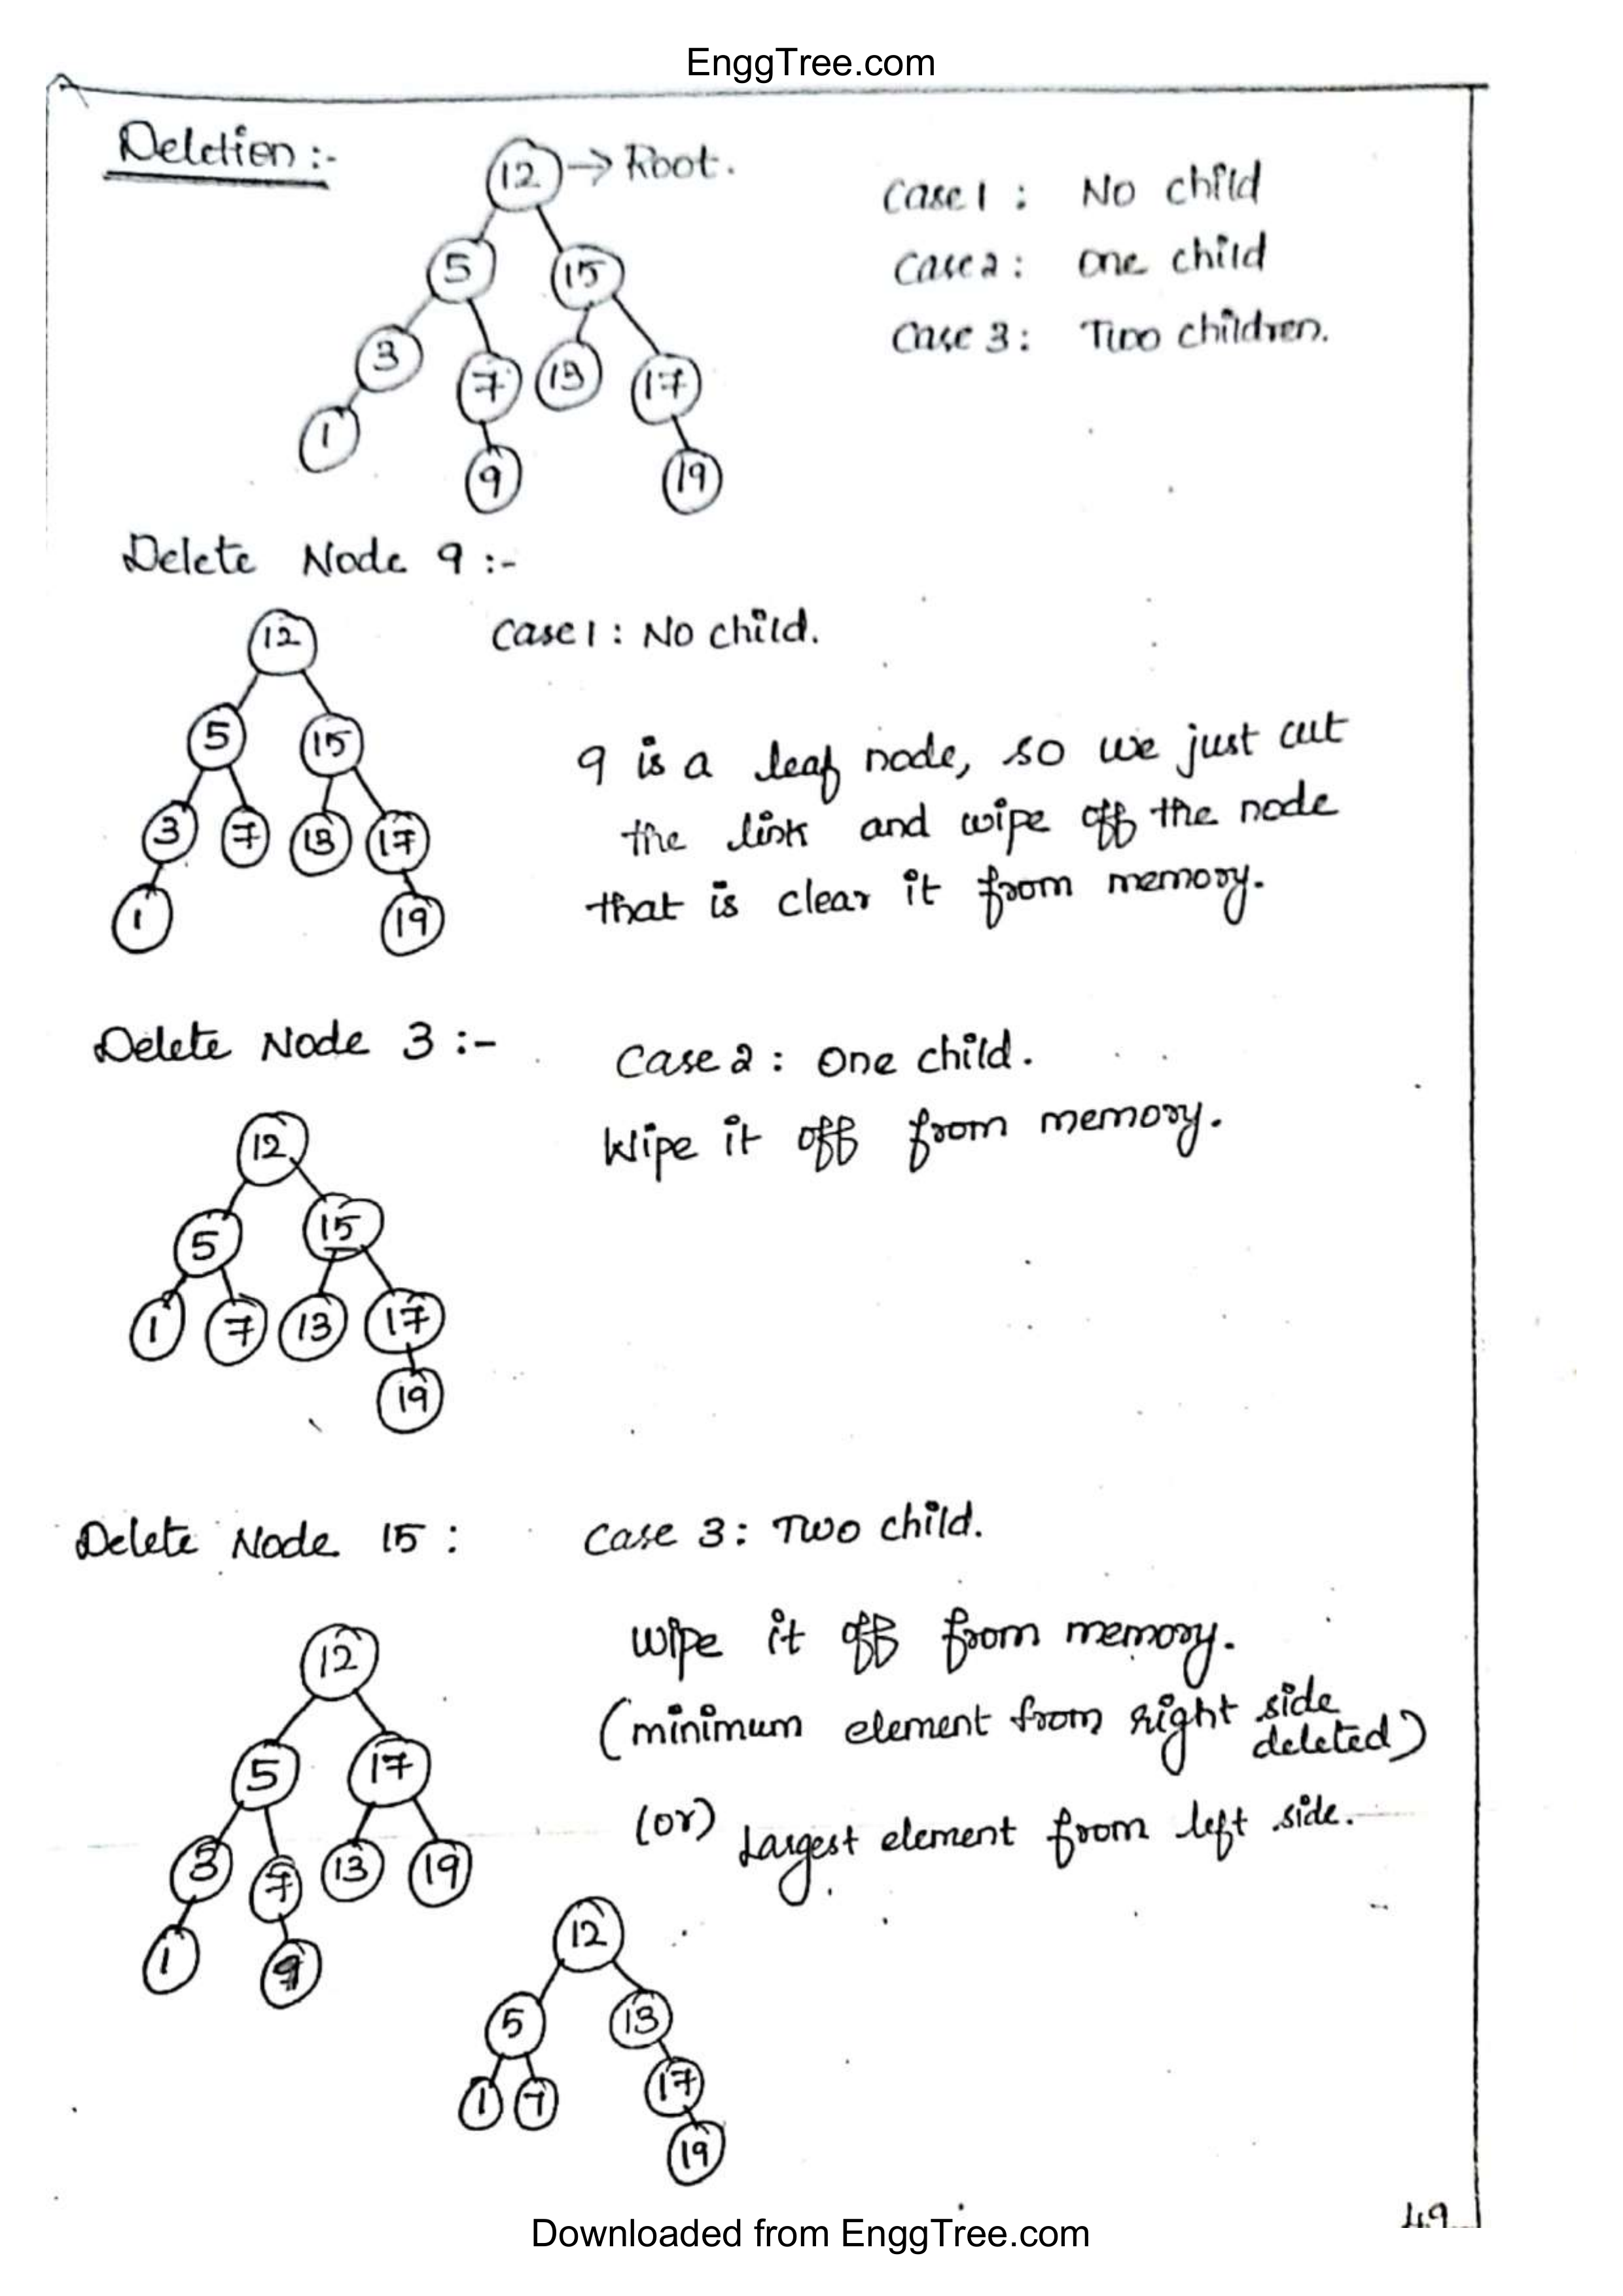 EnggTree.com
Deletion :-
12 → Root.
Case 1 : No child
5 15
Case 2 : One child
3 7 13 17
Case 3 : Two children.
1 9 19
Delete Node 9 :-
12
Case 1 : No child.
5 15
9 is a leaf node, so we just cut
3 7 13 17
the link and wipe off the node
1 19
that is clear it from memory.
Delete Node 3 :-
Case 2 : One child.
12
Wipe it off from memory.
5 15
1 7 13 17
19
Delete Node 15 :
Case 3 : Two child.
12
wipe it off from memory.
5 17
(minimum element from right side deleted)
3 7 13 19
(or) Largest element from left side.
1 9
12
5 13
1 7 17
19
49
Downloaded from EnggTree.com